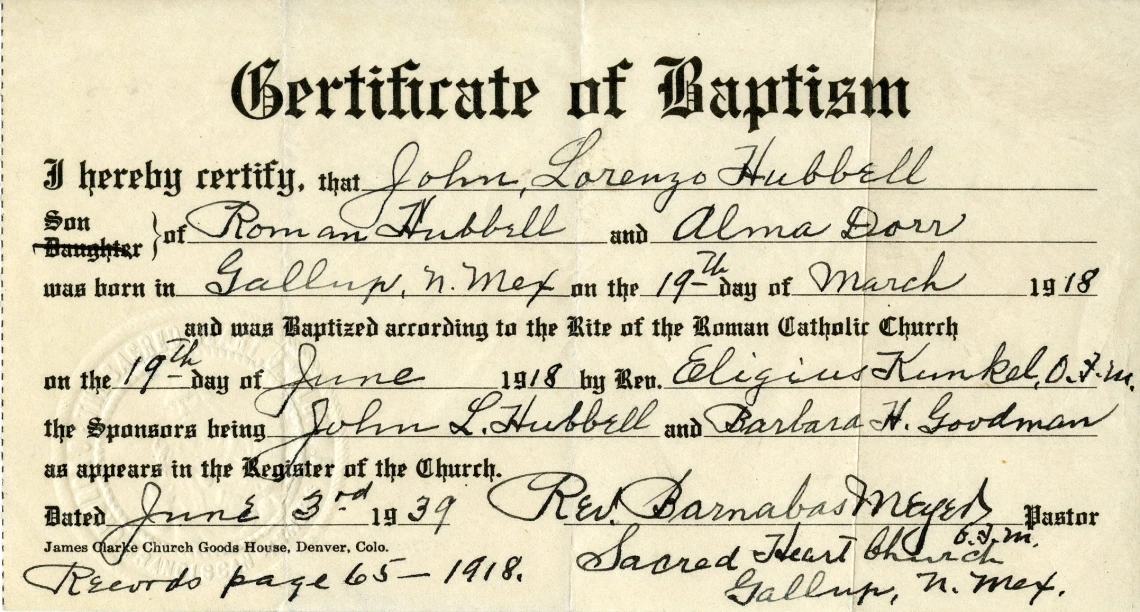 Certificate of Baptism
I hereby certify, that John, Lorenzo Hubbell
Son
Daughter } of Roman Hubbell and Alma Dorr
was born in Gallup, N. Mex on the 19th day of March 1918
and was Baptized according to the Rite of the Roman Catholic Church
on the 19th day of June 1918 by Rev. Eligius Kunkel, O.F.M.
the Sponsors being John L. Hubbell and Barbara H. Goodman
as appears in the Register of the Church.
Dated June 3rd 1939 Rev. Barnabas Meyer Pastor
O.F.M.
James Clarke Church Goods House, Denver, Colo.
Sacred Heart Church
Records page 65 — 1918.
Gallup, N. Mex.